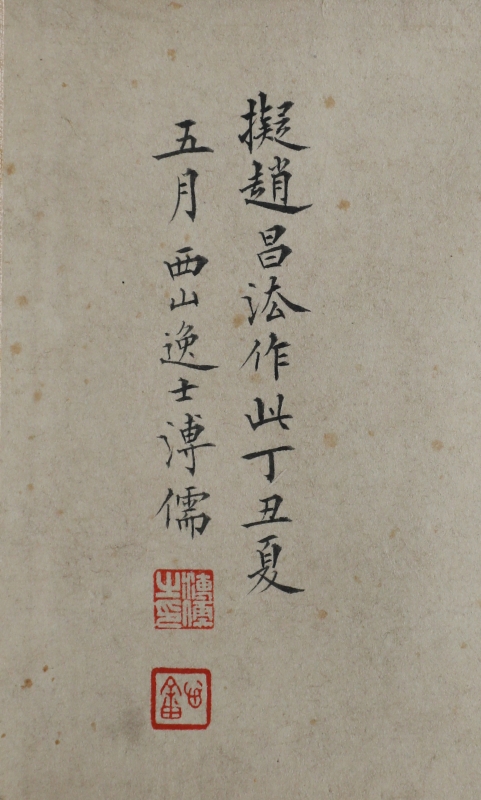 擬趙昌法作此丁丑夏
五月西山逸士溥儒
溥儒之印